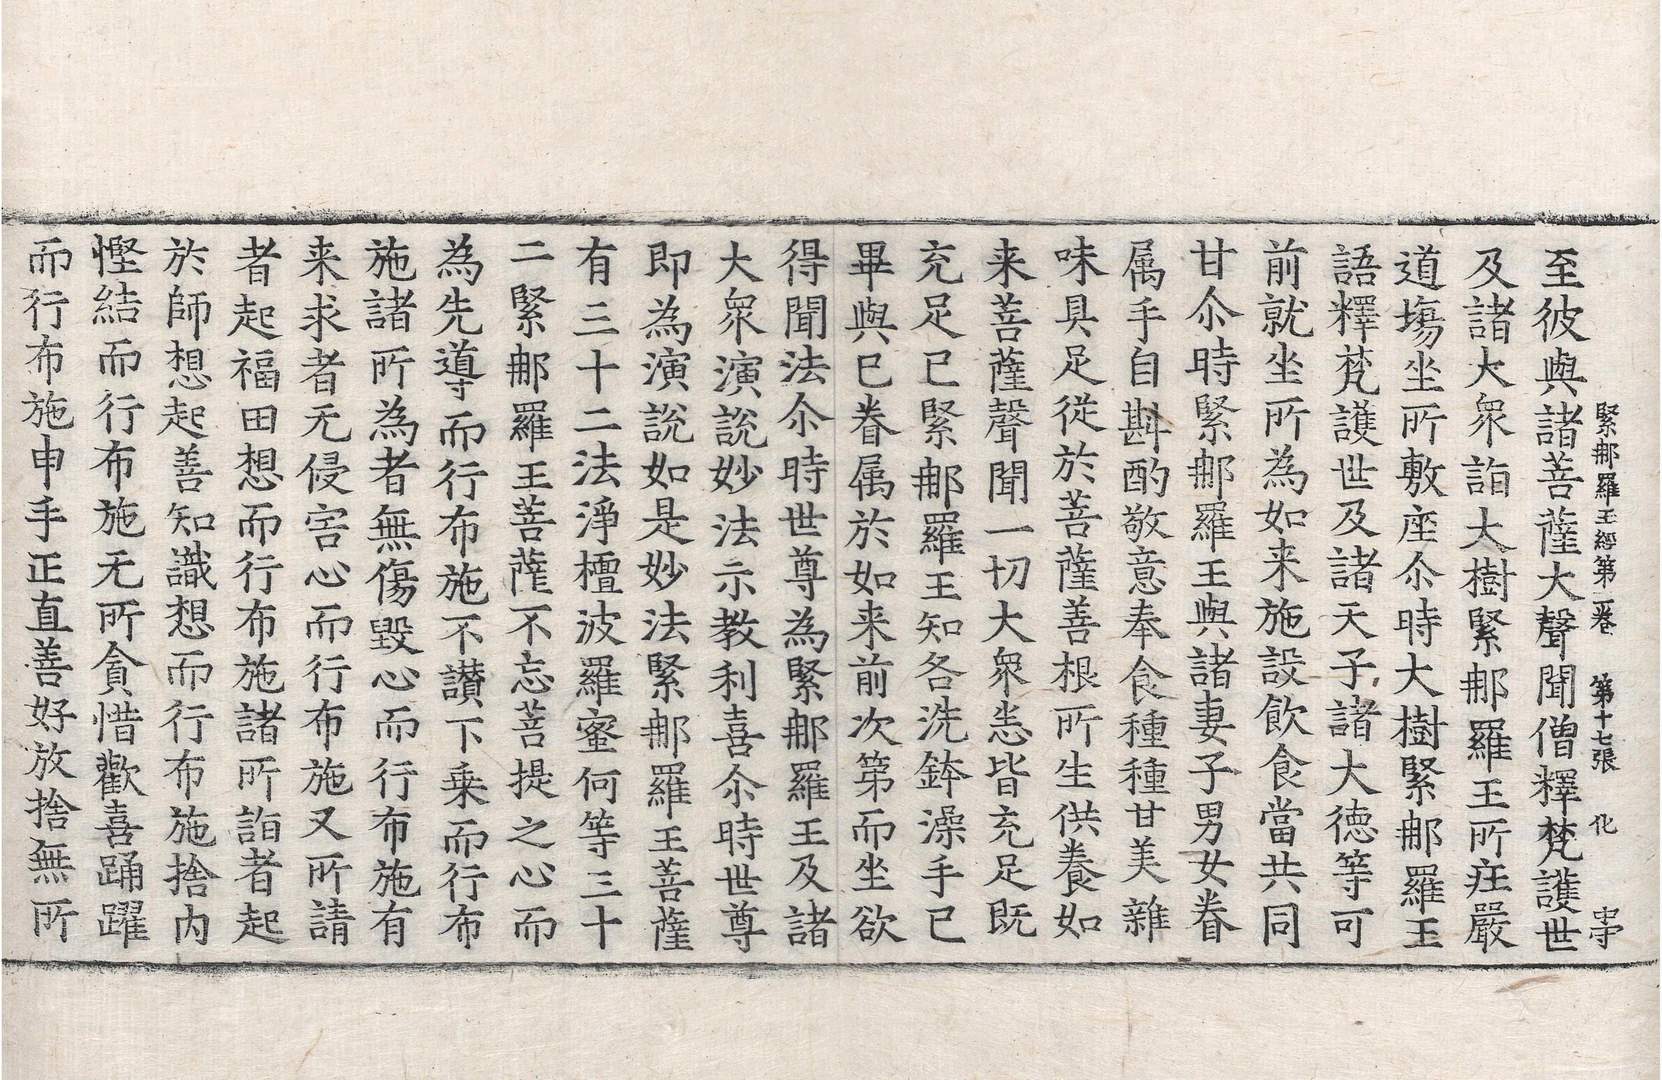 緊那羅王經第二卷 第十七張 化 字
至彼與諸菩薩大聲聞僧釋梵護世
及諸大眾詣大樹緊那羅王所庄嚴
道場坐所敷座尒時大樹緊那羅王
語釋梵護世及諸天子諸大德等可
前就坐所為如来施設飲食當共同
甘尒時緊那羅王與諸妻子男女眷
属手自斟酌敬意奉食種種甘美雜
味具足從於菩薩善根所生供養如
来菩薩聲聞一切大眾悉皆充足既
充足已緊那羅王知各洗鉢澡手已
畢與已眷属於如来前次第而坐欲
得聞法尒時世尊為緊那羅王及諸
大眾演說妙法示教利喜尒時世尊
即為演說如是妙法緊那羅王菩薩
有三十二法淨檀波羅蜜何等三十
二緊那羅王菩薩不忘菩提之心而
為先導而行布施不讃下乗而行布
施諸所為者無傷毀心而行布施有
来求者无侵害心而行布施又所請
者起福田想而行布施諸所詣者起
於師想起善知識想而行布施捨内
慳結而行布施无所貪惜歡喜踊躍
而行布施申手正直善好放捨無所